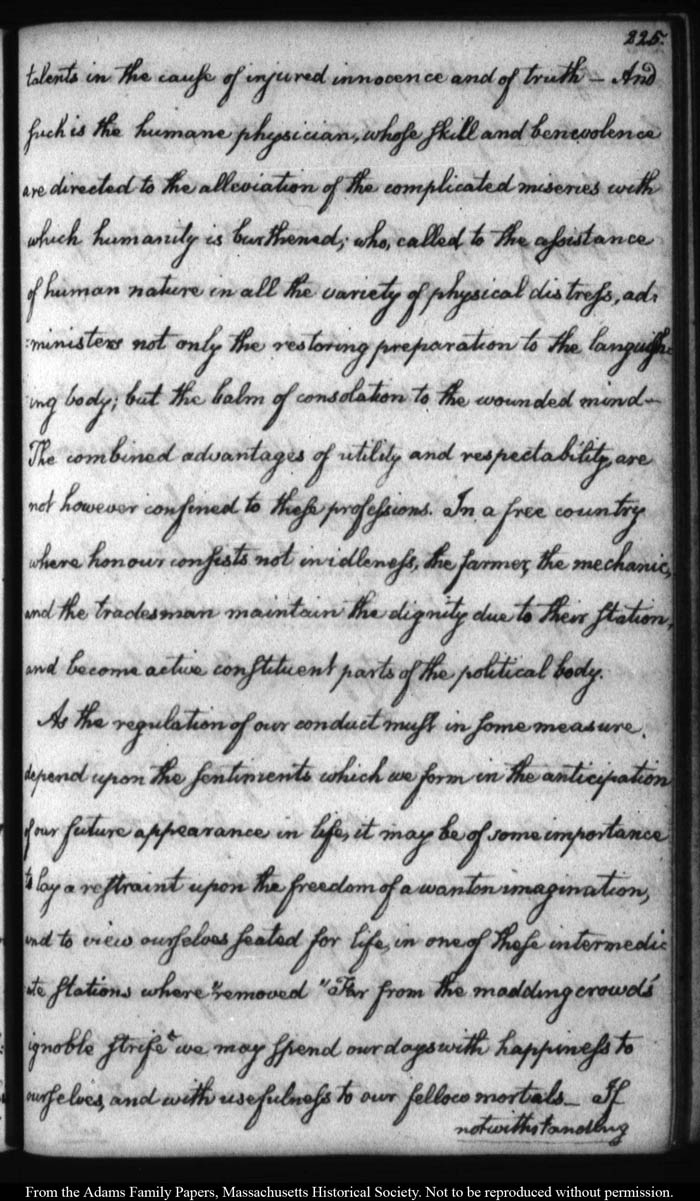 225.
talents in the cause of injured innocence and of truth — And
such is the humane physician, whose skill and benevolence
are directed to the alleviation of the complicated miseries with
which humanity is burthened; who, called to the assistance
of human nature in all the variety of physical distress, ad:
:ministers not only the restoring preparation to the languish:
ing body; but the balm of consolation to the wounded mind—
The combined advantages of utility and respectability, are
not however confined to these professions. In a free country
where honour consists not in idleness, the farmer, the mechanic,
and the tradesman maintain the dignity due to their station,
and become active constituent parts of the political body.
As the regulation of our conduct must in some measure
depend upon the sentiments which we form in the anticipation
of our future appearance in life, it may be of some importance
to lay a restraint upon the freedom of a wanton imagination,
and to view ourselves seated for life, in one of these intermedi
ate stations where "removed "Far from the madding crowd's
ignoble strife" we may spend our days with happiness to
ourselves, and with usefulness to our fellow mortals— If
notwithstanding
From the Adams Family Papers, Massachusetts Historical Society. Not to be reproduced without permission.